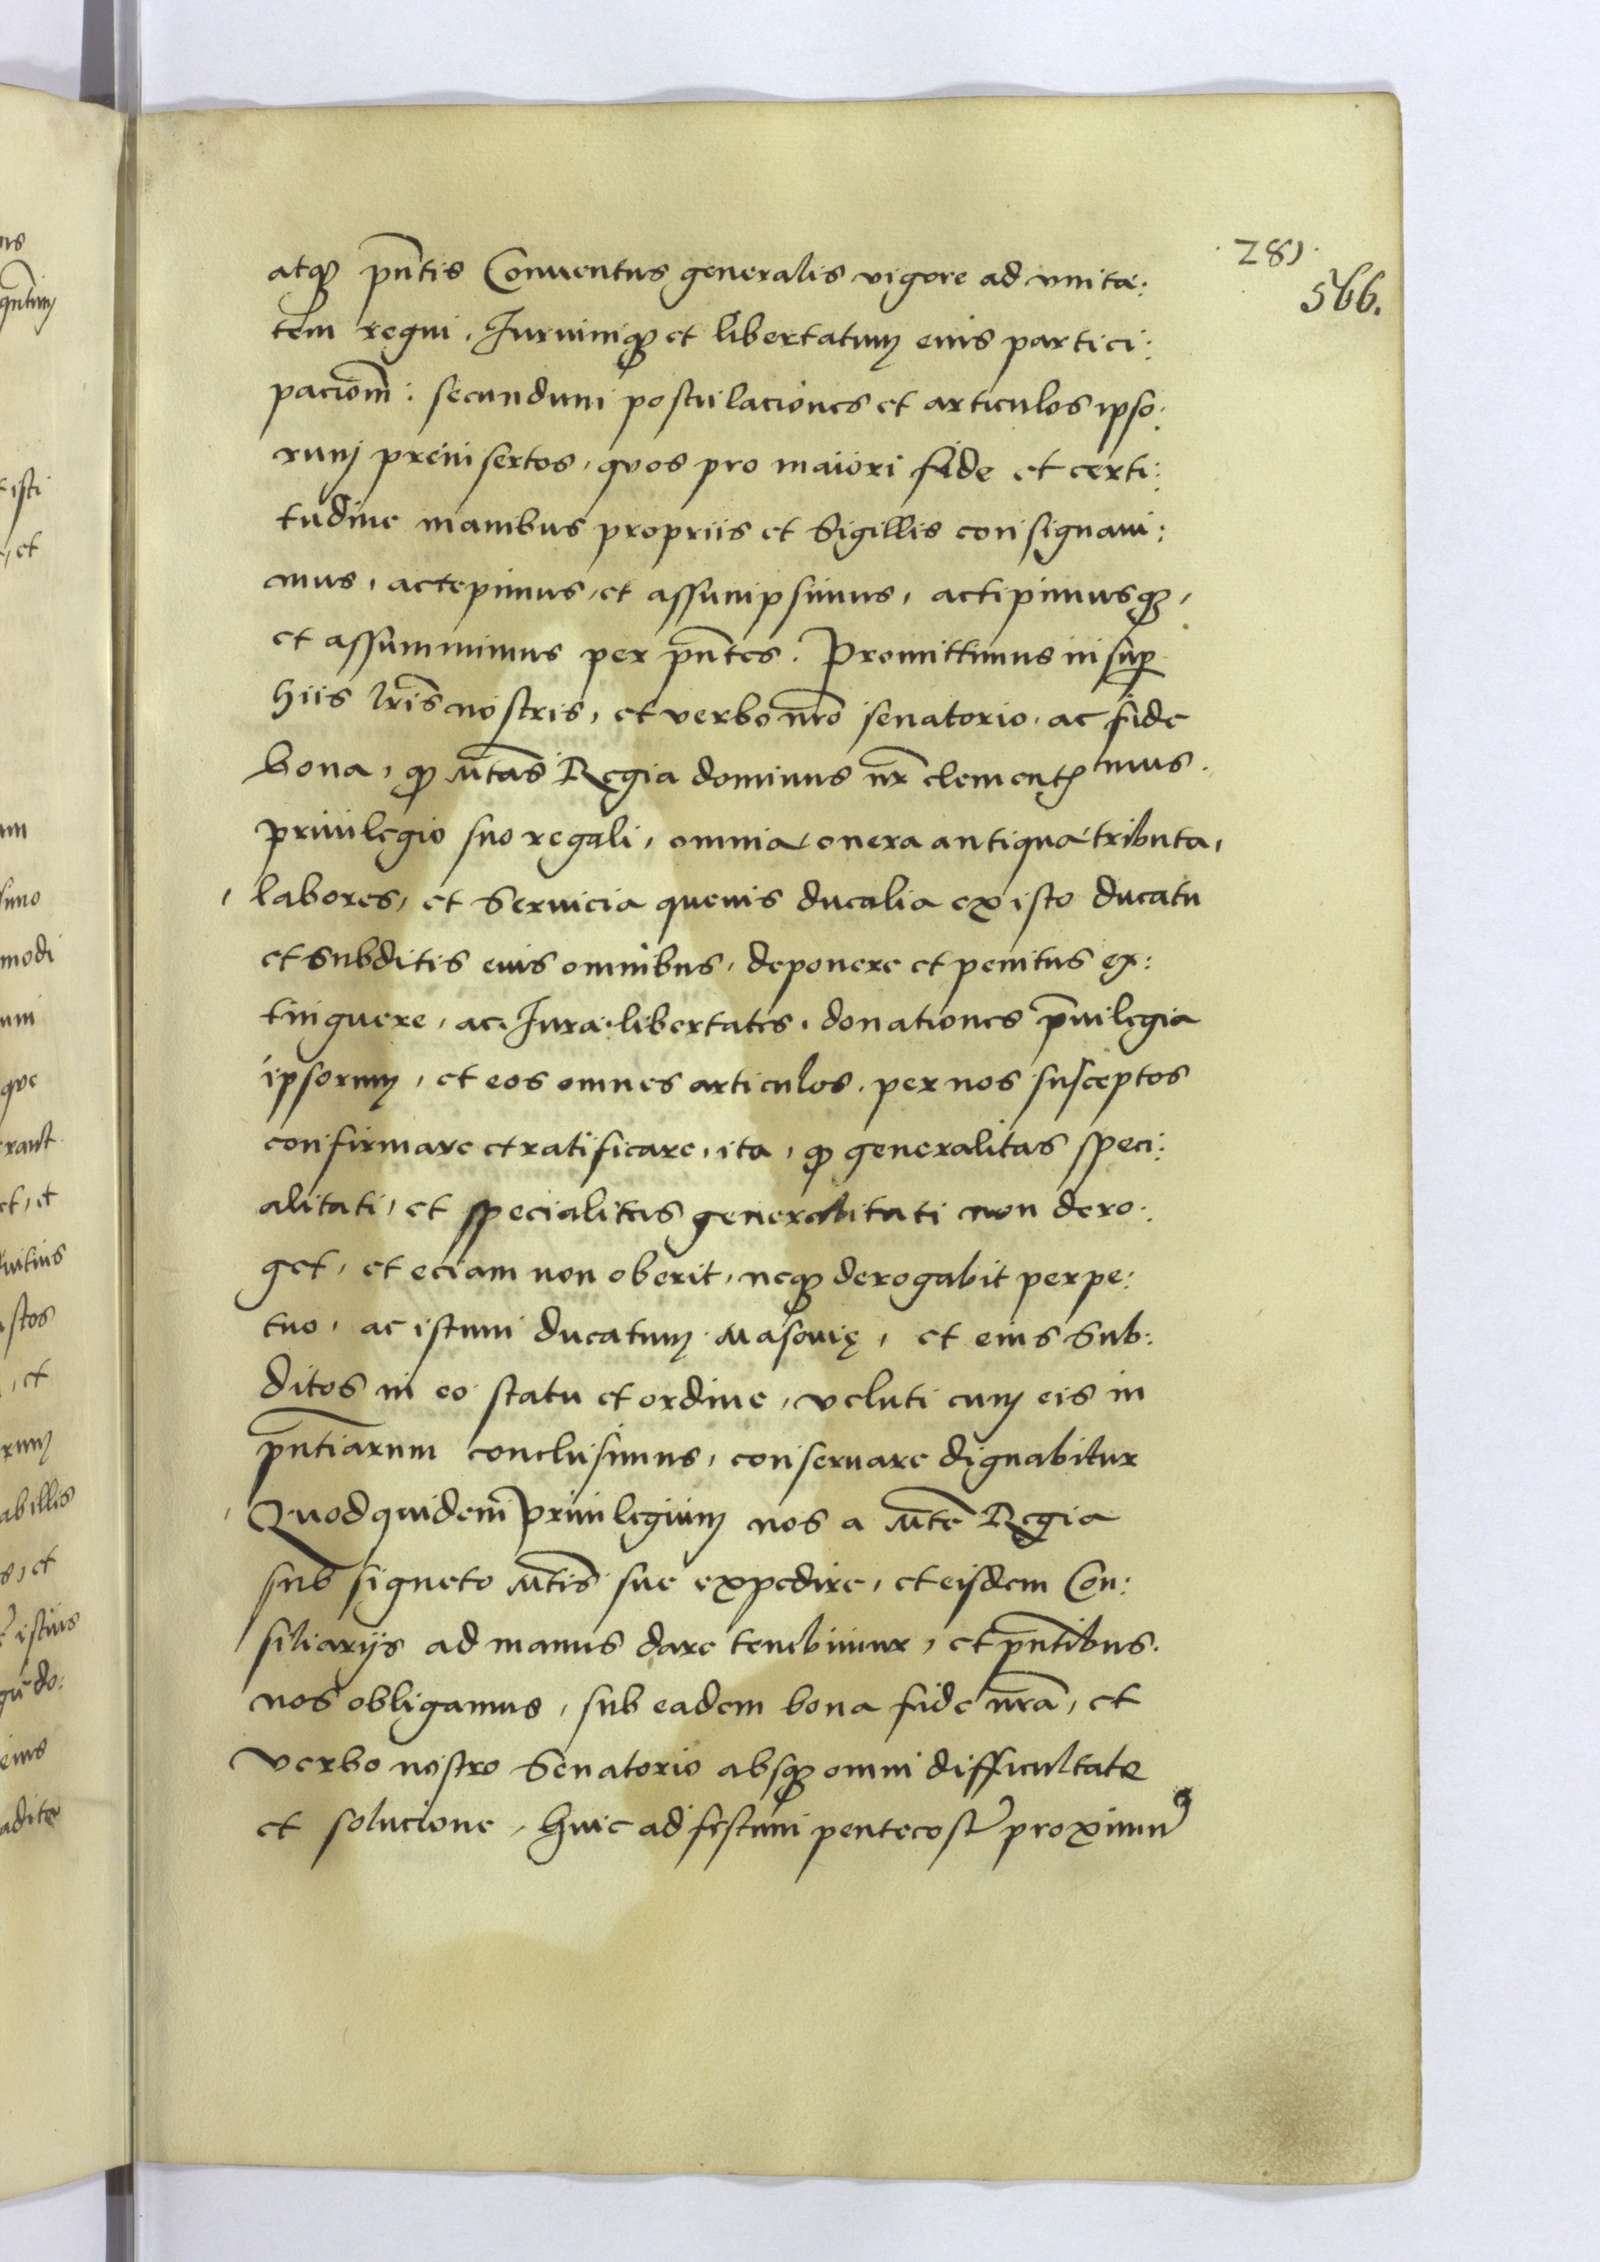 281.
566.
atq3 pn̄tis Conuentus generalis vigore ad vnita:
tem regni, Iuriumq3 et libertatum eius partici:
pacionē: secundum postulaciones et articulos ipso:
rum preinsertos, quos pro maiori fide et certi:
tudine manibus propriis et Sigillis consignaui:
mus, accepimus, et assumpsimus, accipimusq3,
et assummimus per pn̄tes. Promittimus insup
hiis lr̄is nostris, et verbo nr̄o senatorio, ac fide
bona, q̨ Mtas̄ Regia dominus nr̄ clementꝭmus.
priuilegio suo regali, omnia onera antiqua tributa,
labores, et Seruicia queuis ducalia ex isto ducatu
et subditis eius omnibus, deponere et penitus ex:
tinguere, ac Iura libertates, donationes p̄uilegia
ipsorum, et eos omnes articulos, per nos susceptos
confirmare et ratificare, ita, q̨ generalitas speci:
alitati, et specialitas generalitati non dero:
get, et eciam non oberit, neq3 derogabit perpe:
tuo, ac istum ducatum Masouię, et eius Sub:
ditos in eo statu et ordine, veluti cum eis in
pn̄tiarum conclusimus, conseruare dignabitur
Quodquidem priuilegium nos a Mtē Regia
sub signeto Mtis̄ sue expedire, et eisdem Con:
siliarijs ad manus dare tenebimur, et pn̄tibus.
nos obligamus, sub eadem bona fide nr̄a, et
verbo nostro Senatorio absq3 omni difficultate
et solucione, huic ad festum pentecosꝭ proximū